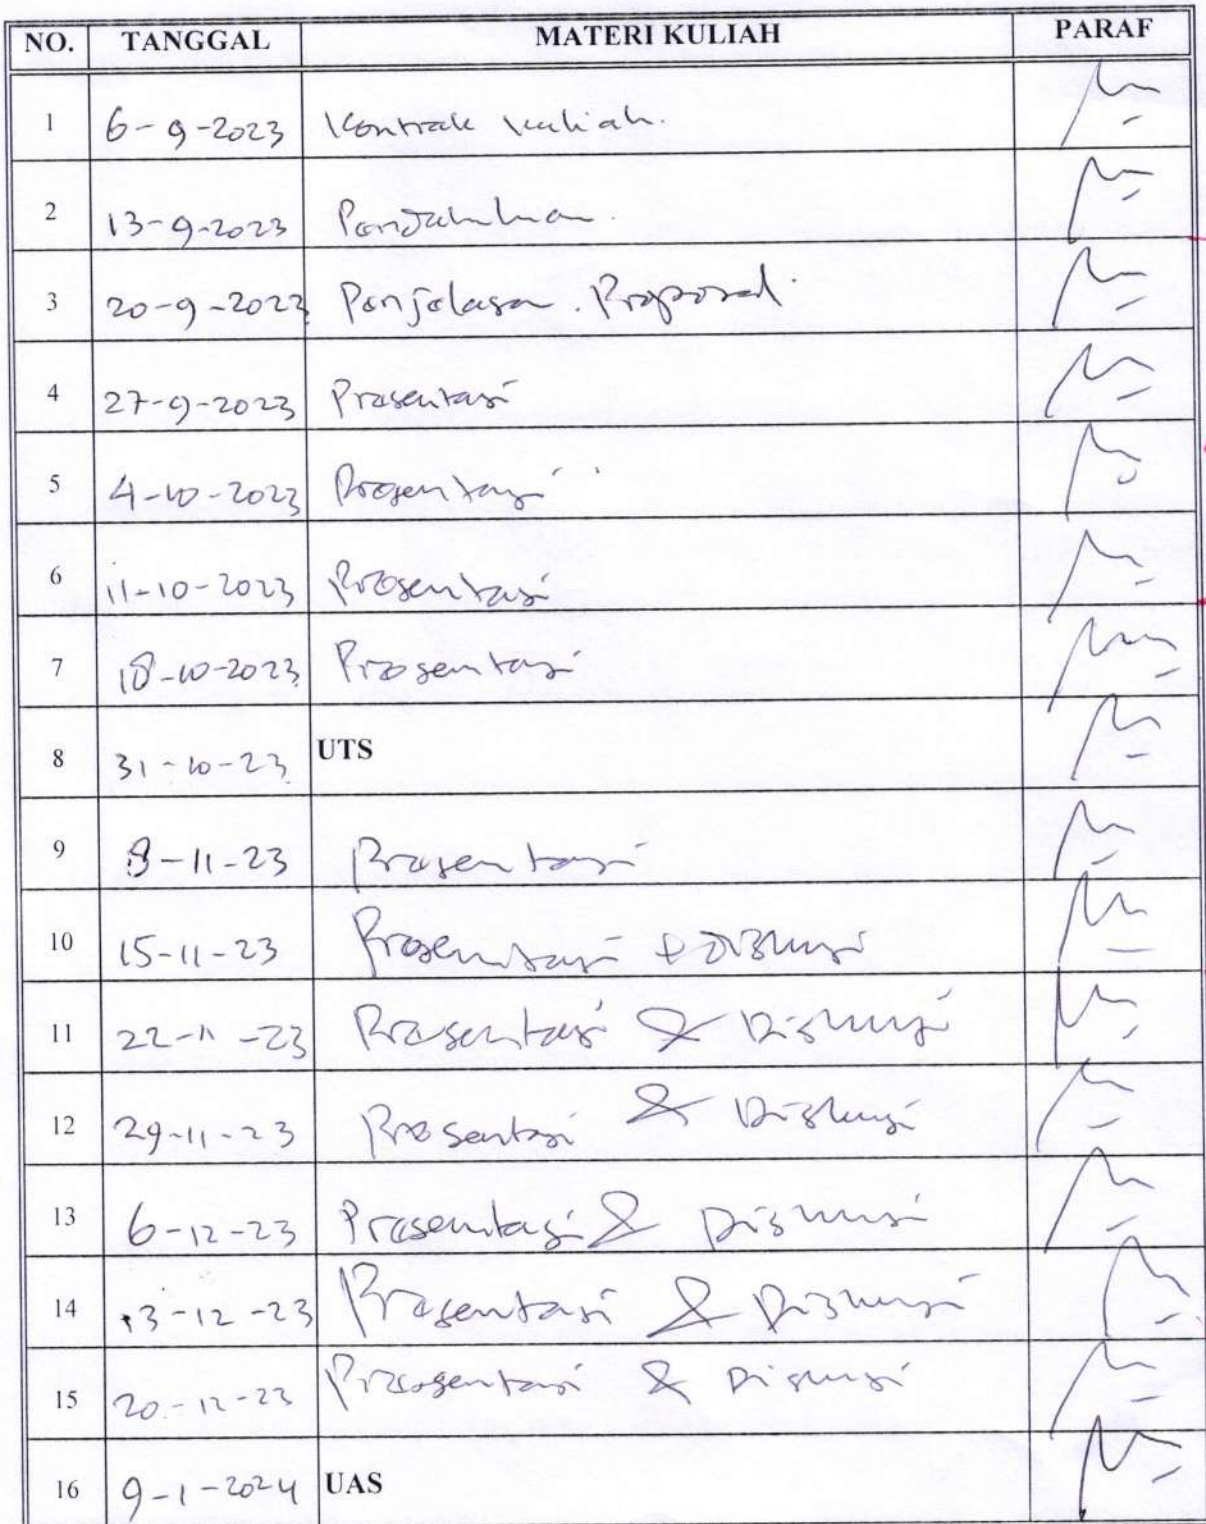 NO. TANGGAL MATERI KULIAH PARAF
1 6-9-2023 Kontrak kuliah.
2 13-9-2023 Pendahuluan.
3 20-9-2023 Penjelasan Proposal.
4 27-9-2023 Presentasi
5 4-10-2023 Presentasi
6 11-10-2023 Presentasi
7 18-10-2023 Presentasi
8 31-10-23 UTS
9 8-11-23 Presentasi
10 15-11-23 Presentasi & Diskusi
11 22-11-23 Presentasi & Diskusi
12 29-11-23 Presentasi & Diskusi
13 6-12-23 Presentasi & Diskusi
14 13-12-23 Presentasi & Diskusi
15 20-12-23 Presentasi & Diskusi
16 9-1-2024 UAS